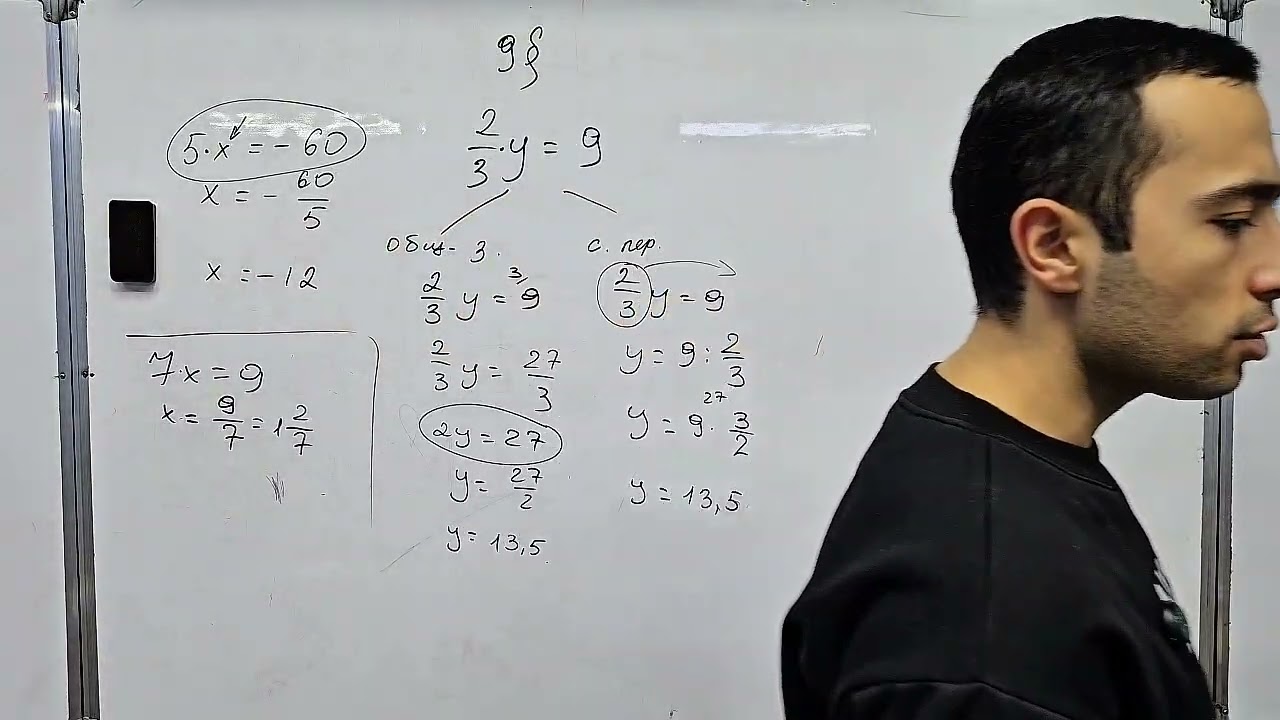 9§
5·x = -60
x = - 60/5
x = -12
7·x = 9
x = 9/7 = 1 2/7
2/3 · y = 9
Общ- 3.
2/3 y = 9 3,
2/3 y = 27/3
2y = 27
y = 27/2
y = 13,5.
с. пер.
2/3 y = 9
y = 9 : 2/3
27
y = 9 · 3/2
y = 13,5.